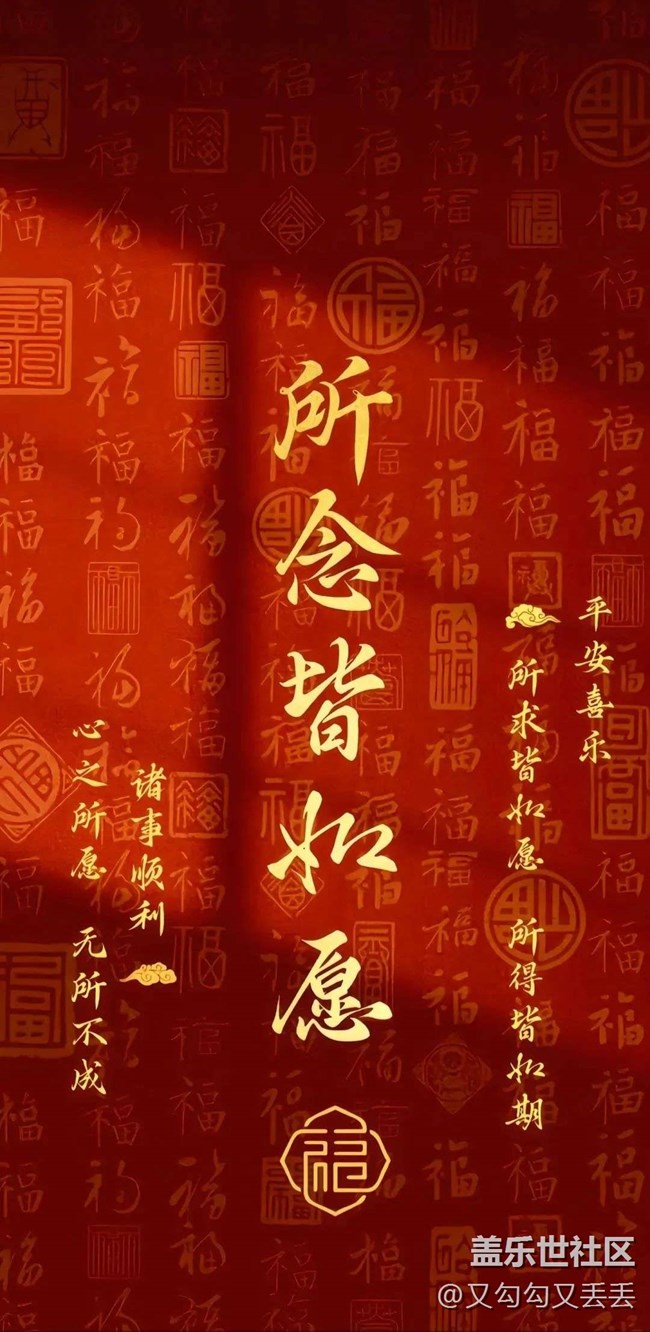 所念皆如愿
平安喜乐
所求皆如愿 所得皆如期
诸事顺利
心之所愿 无所不成
福
盖乐世社区
@又勾勾又丢丢